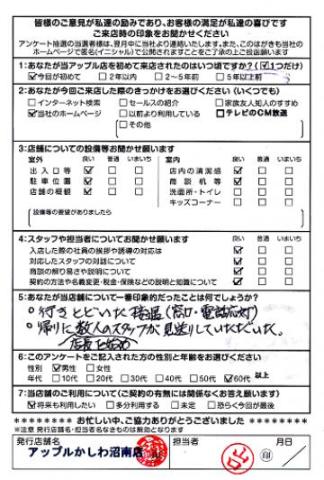 皆様のご意見が私達の励みであり、お客様の満足が私達の喜びです
ご来店時の印象をお聞かせください
アンケート抽選の当選者様は、翌月中に当社より連絡いたします。また、このはがきも当社の
ホームページで(Eメール・イニシャルにて)公開されますことをご了承の上ご投函願います
1:あなたが当アップル店を初めて来店されたのはいつ頃ですか?(☑1つだけ)
☑今回が初めて □2年以内 □2〜5年前 □5年以上前
2:あなたが今回ご来店した際のきっかけをお選びください(いくつでも)
□インターネット検索 □セールスの紹介 □家族友人知人のすすめ
☑当社のホームページ □以前より利用している □テレビのCM放送
□その他
3:店舗についての設備等お聞かせ願います
室外 良い 普通 いまいち 室内 良い 普通 いまいち
出入口等 ☑ □ □ 店内の清潔感 ☑ □ □
駐車位置 ☑ □ □ 商談机等 ☑ □ □
店舗の概観 ☑ □ □ 洗面所・トイレ □ □ □
キッズコーナー □ □ □
設備等の要望がありましたら
4:スタッフや担当者についてお聞かせ願います 良い 普通 いまいち
入店した際の社員の挨拶や誘導の対応は ☑ □ □
対応したスタッフの対話について ☑ □ □
商談の解り易さや説明について ☑ □ □
契約の方法や名義変更・税金・保険などの説明と知識について ☑ □ □
5:あなたが当店舗について一番印象的だったことは何でしょうか?
○行きとどいた接遇(窓口・電話応対)
○帰りに数人のスタッフが見送りしていただいた。
店長を始め
6:このアンケートをご記入された方の性別と年齢をお選びください
性別 ☑男性 □女性
年代 □10代 □20代 □30代 □40代 □50代 ☑60代 以上
7:当店舗のご利用について(ご契約の有無には関係なくお答え願います)
☑将来も利用したい □多分利用する □未定 □恐らく今回が最後
******** お忙しい中、ご協力ありがとうございました ********
※注意 発行店舗名・担当者名なきものは無効となります
発行店舗名 担当者 月日
アップルかしわ沼南店 印 山口 印 /